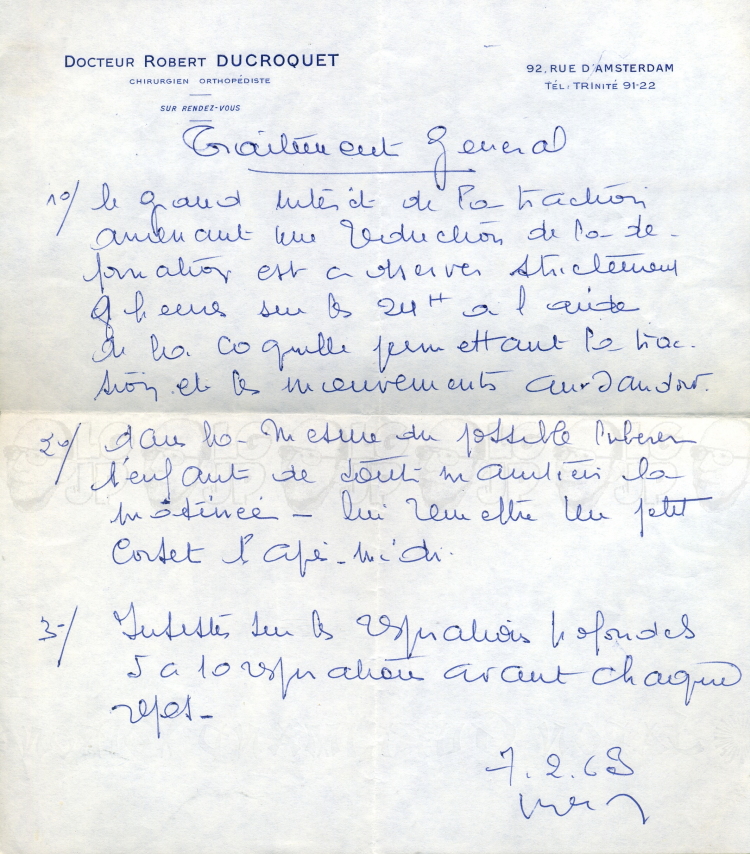 DOCTEUR ROBERT DUCROQUET
CHIRURGIEN ORTHOPÉDISTE
SUR RENDEZ-VOUS
92, RUE D'AMSTERDAM
TÉL: TRINITÉ 91-22
Traitement General
1°/ le grand intérêt de la traction
amenant une reduction de la de-
formation est a observer strictement
9 heures sur les 24 H a l'aide
de la coquille permettant la trac-
tion et les mouvements
2°/ dans la mesure du possible liberer
l'enfant de toute la
matinée - lui remettre un petit
corset l'après-midi.
3°/ sur les respirations profondes
5 a 10 respirations avant chaque
repas -
7.2.69